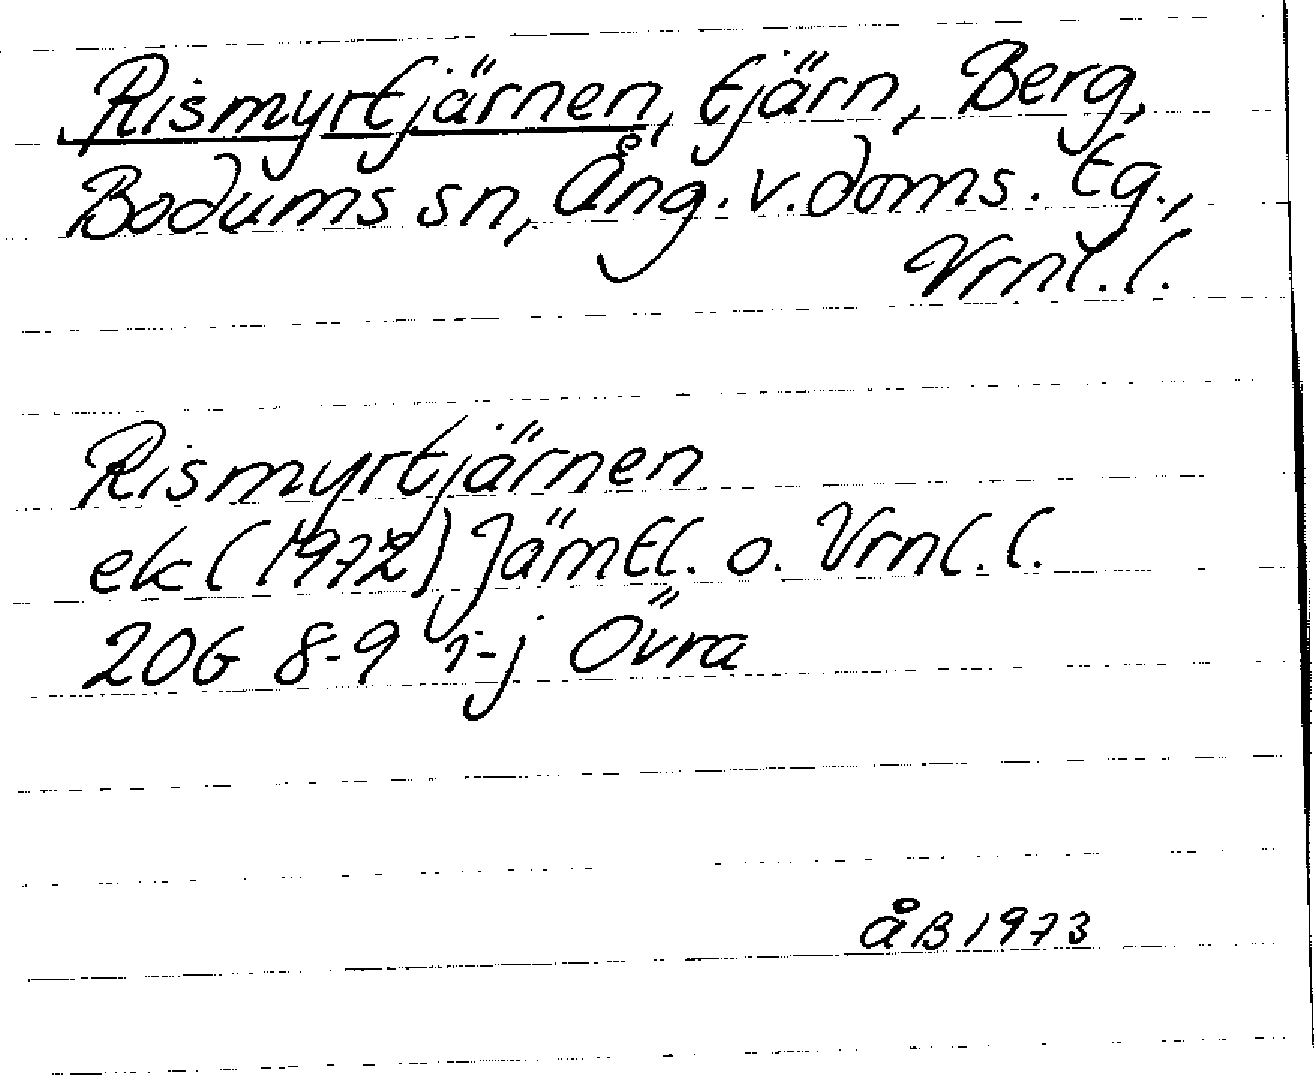 Rismyrtjärnen, tjärn, Berg,
Bodums sn, Ång. v. doms. tg.,
Vrnl. l.
Rismyrtjärnen
ek (1972) Jämtl. o. Vrnl. l.
20G 8-9 i-j Övra
åB 1973